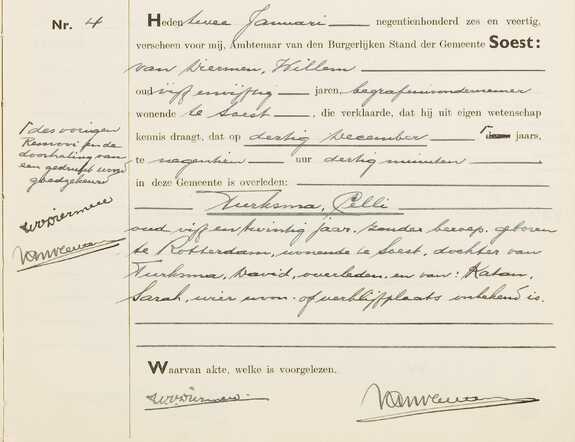 Nr. 4
Heden twee Januari negentienhonderd zes en veertig,
verscheen voor mij, Ambtenaar van den Burgerlijken Stand der Gemeente Soest:
van Diermen, Willem
oud vijf en vijftig jaren, begrafenisondernemer
wonende te Soest, die verklaarde, dat hij uit eigen wetenschap
kennis draagt, dat op dertig December Γ jaars,
te negentien uur dertig minuten
in deze Gemeente is overleden:
Turksma, Celli
oud vijf en twintig jaar, zonder beroep, geboren
te Rotterdam, wonende te Soest, dochter van
Turksma, David, overleden, en van: Katan,
Sarah, wier woon- of verblijfplaats onbekend is.
Waarvan akte, welke is voorgelezen.
WvDiermen
Γ des vorigen
Renvooi en de
doorhaling van
een gedrukt woord
goedgekeurd
WvDiermen